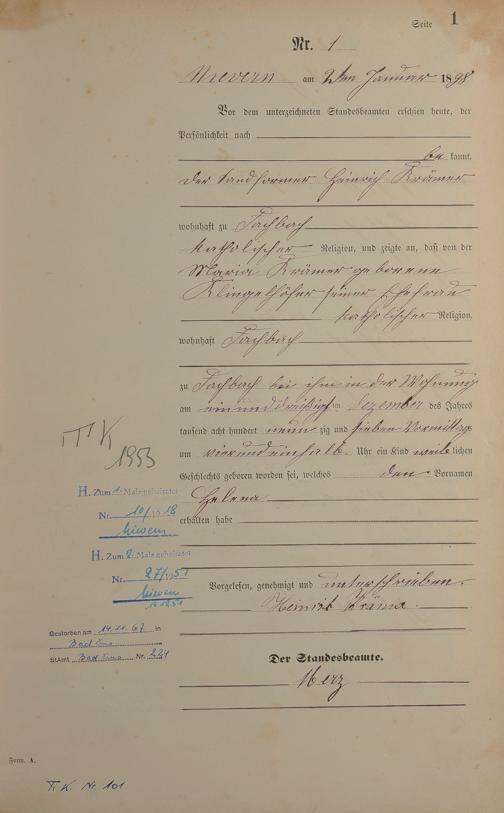 Seite 1
Nr. 1
Nievern am 2ten Januar 1898
Vor dem unterzeichneten Standesbeamten erschien heute, der
Persönlichkeit nach
be kannt,
der Sandformer Heinrich Krämer
wohnhaft zu Fachbach
katholischer Religion, und zeigte an, daß von der
Maria Krämer geborene
Klingelhöfer seiner Ehefrau
katholischer Religion,
wohnhaft Fachbach
zu Fachbach bei ihm in der Wohnung
am einunddreißigsten Dezember des Jahres
tausend acht hundert neun zig und sieben Vormittags
um vierundeinhalb Uhr ein Kind weib lichen
Geschlechts geboren worden sei, welches den Vornamen
Helena
erhalten habe
T. K
1953
H. Zum 1. Male geheiratet
Nr. 10/1918
Nievern
H. Zum 2. Male geheiratet
Nr. 27/1951
Nievern
Vorgelesen, genehmigt und unterschrieben
Heinrich Krämer.
Gestorben am 14.11.67 in
Bad Ems
StAmt Bad Ems Nr. 224
Der Standesbeamte.
Merz
Form. A.
T. K. Nr. 101